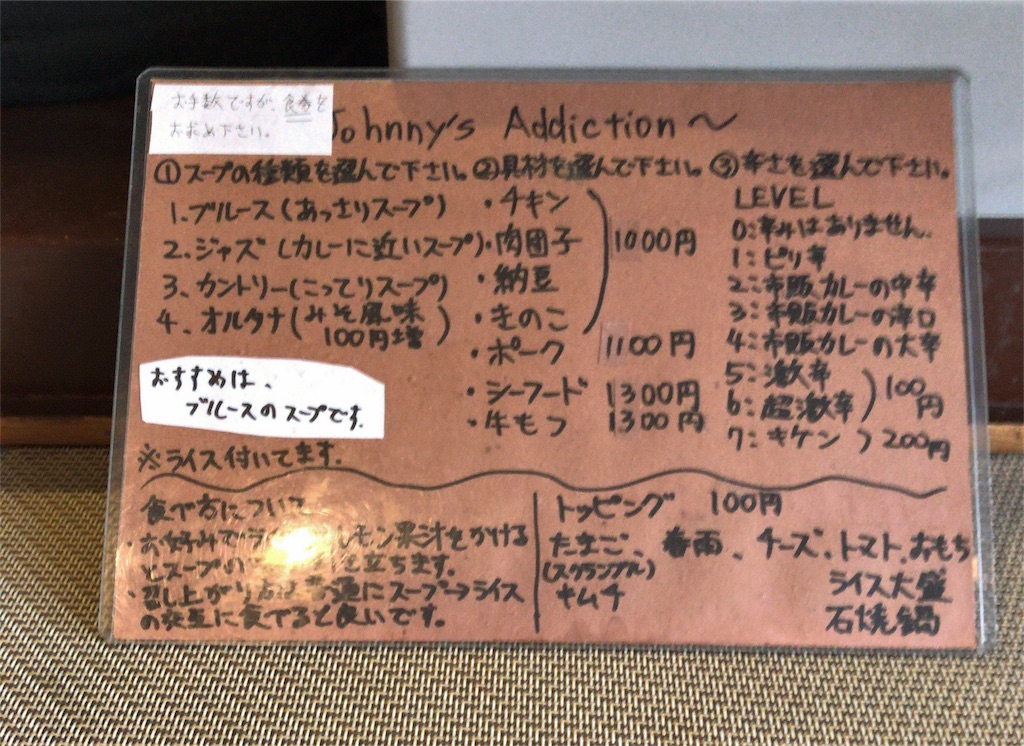 お手数ですが、食券を
お求め下さい。
Johnny's Addiction～
①スープの種類を選んで下さい。
1.ブルース(あっさりスープ)
2.ジャズ(カレーに近いスープ)
3.カントリー(こってりスープ)
4.オルタナ(みそ風味
100円増)
おすすめは、
ブルースのスープです。
※ライス付いてます.
②具材を選んで下さい。
・チキン
・肉団子 1000円
・納豆
・きのこ
・ポーク 1100円
・シーフード 1300円
・牛もつ 1300円
③辛さを選んで下さい。
LEVEL
0:辛みはありません.
1:ピリ辛
2:市販カレーの中辛
3:市販カレーの辛口
4:市販カレーの大辛
5:激辛
6:超激辛 )100円
7:キケン )200円
食べ方について
・お好みで レモン果汁をかける
とスープの 立ちます。
・召し上がり方は普通にスープ→ライス
の交互に食べると良いです。
トッピング 100円
たまご、春雨、チーズ、トマト、おもち
(スクランブル)
キムチ
ライス大盛
石焼鍋